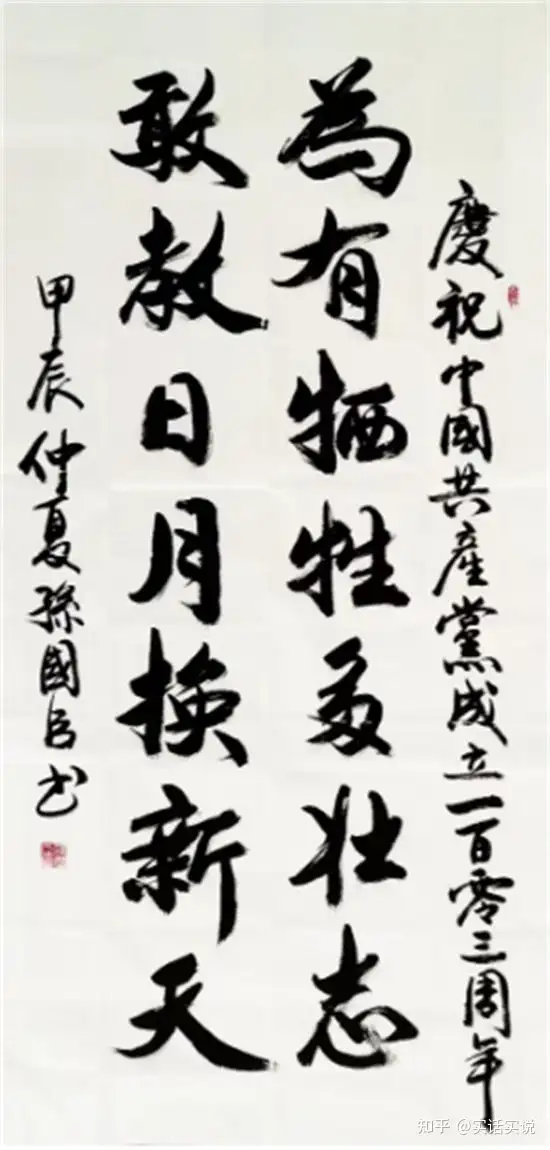 慶祝中國共産黨成立一百零三周年
為有牺牲多壮志
敢教日月换新天
甲辰仲夏孫國良书
知乎 @实话实说